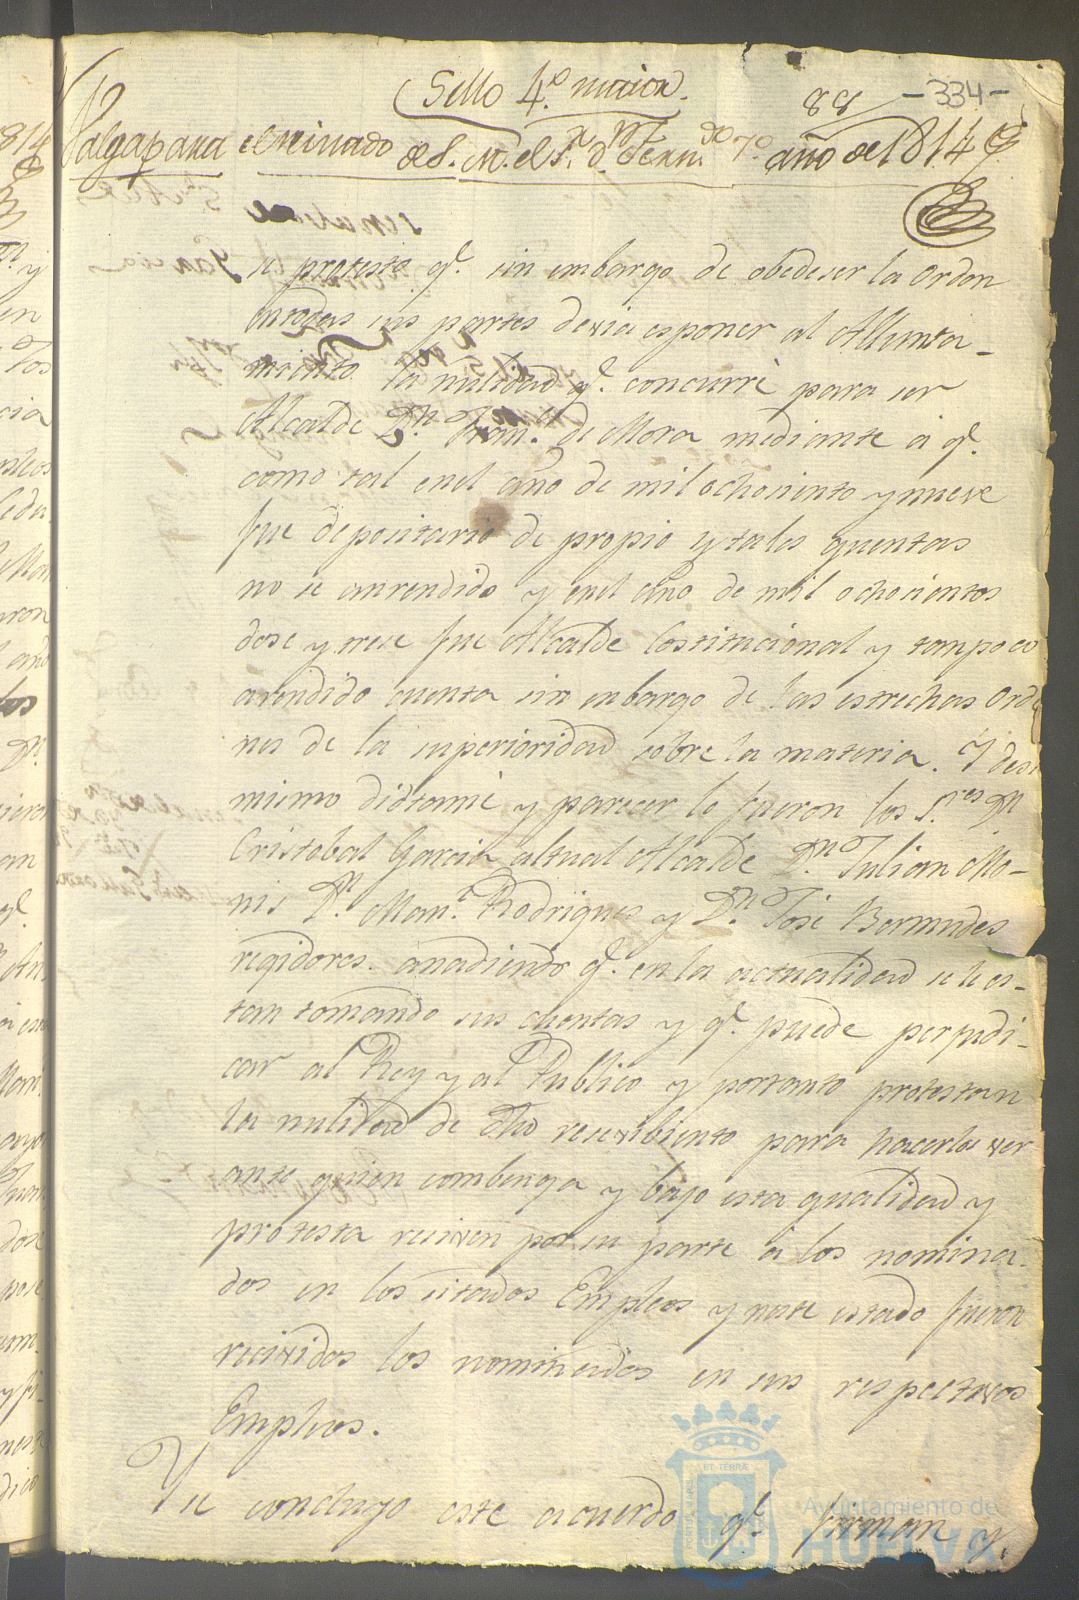 Sello 4.º mrvn.
88
-334-
Valga para el reinado de S. M. el S.r d.n Fern.do 7.º año de 1814
se protesto q.e sin embargo de obedeser la orden
entodas sus partes devia esponer al Allunta-
miento la nulidad q.e concurre para ser
Alcalde D.n Fran.co de Mora mediante a q.e
como tal en el año de mil ochosiento y nueve
fue depositario de propio y tales quentas
no se an rendido y en el año de mil ochosientos
dose y trese fue Alcalde Costitucional y tanpoco
a rendido cuenta sin enbargo de las estrechas orde
nes de la superioridad sobre la materia. Y deste
mismo distamé y pareser lo fueron los S.res D.n
Cristobal Garcia altual Alcalde D.n Julian Mo-
nis D.n Man.l Rodrigues y D.n José Bermudes
regidores. anadiendo q.e en la actualidad se le es-
tan tomando sus cuentas y q.e puede perjudi-
car al Rey y al Publico y portanto protestan
la nulidad de dho resevibiento para hacerlo ver
ante quien combenga y bajo esta qualidad y
protesta reseiven por su parte a los nomina-
dos en los sitados Empleos y neste estado fueron
recividos los nominados en sus respectivos
Empleos.
Y se concluyo este acuerdo q.e firman y
ET TERRÆ
Ayuntamiento de
HUELVA